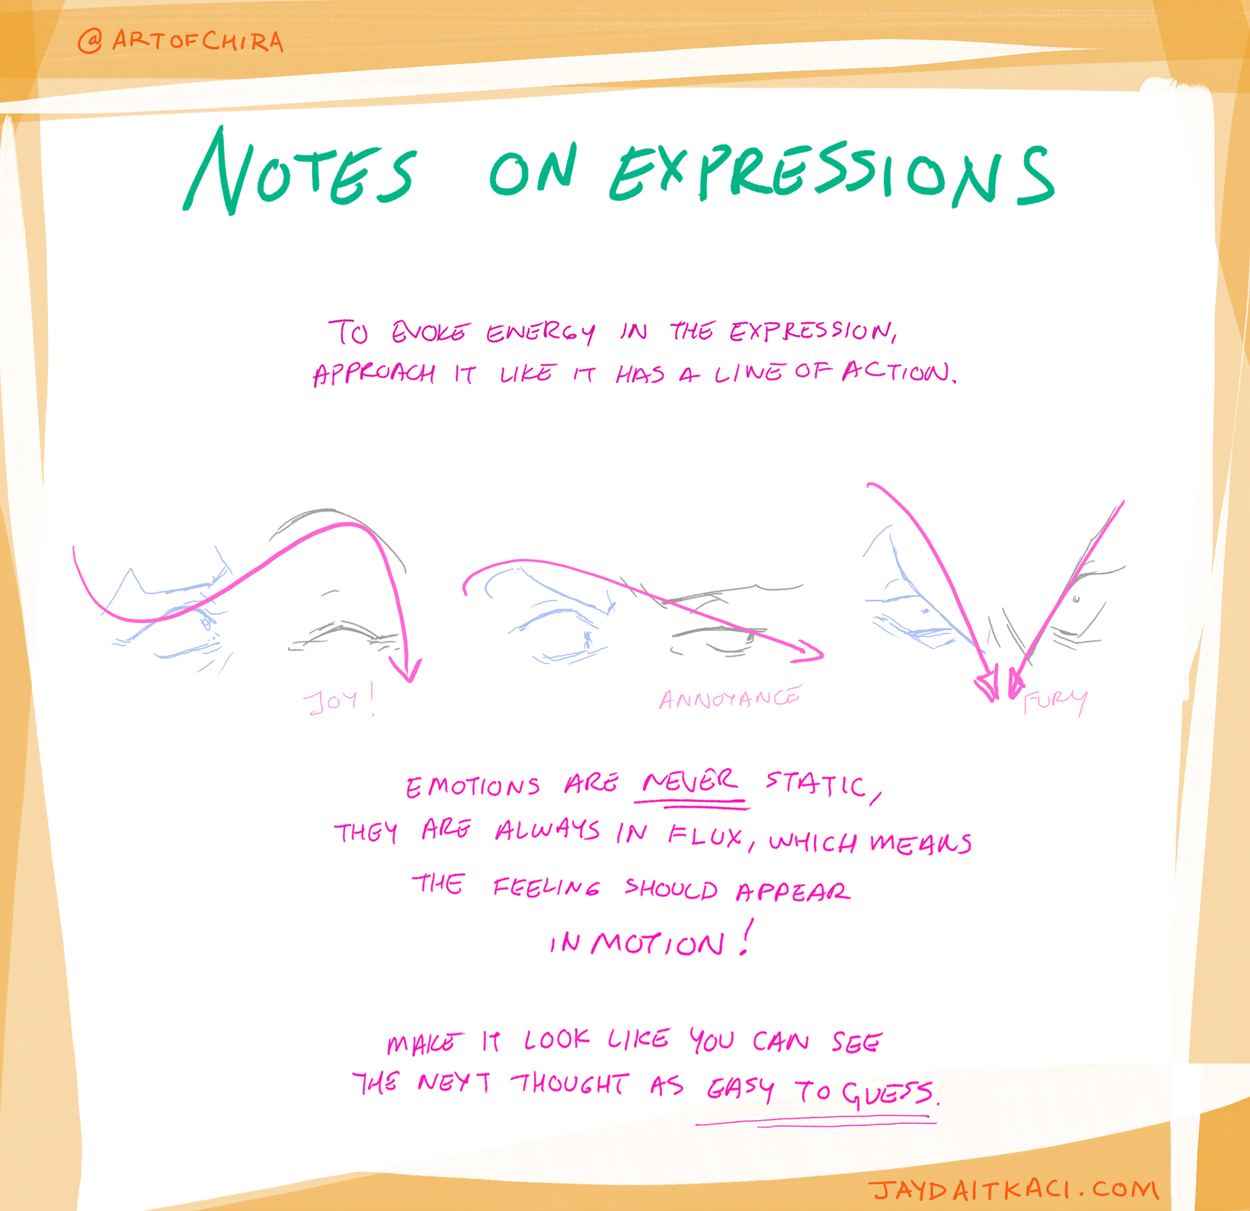 @ARTOFCHIRA
NOTES ON EXPRESSIONS
TO EVOKE ENERGY IN THE EXPRESSION,
APPROACH IT LIKE IT HAS A LINE OF ACTION.
JOY!
ANNOYANCE
FURY
EMOTIONS ARE NEVER STATIC,
THEY ARE ALWAYS IN FLUX, WHICH MEANS
THE FEELING SHOULD APPEAR
IN MOTION!
MAKE IT LOOK LIKE YOU CAN SEE
THE NEXT THOUGHT AS EASY TO GUESS.
JAYDAITKACI.COM